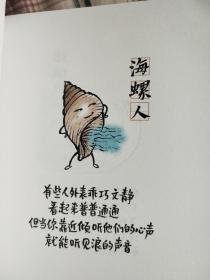 海螺人
有些人外表乖巧文静
看起来普普通通
但当你靠近倾听他们的心声
就能听见浪的声音